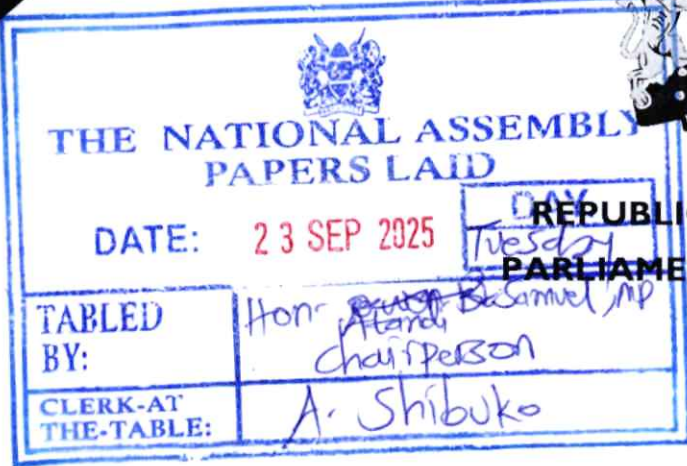 THE NATIONAL ASSEMBLY
PAPERS LAID
DATE: 23 SEP 2025
DAY
Tuesday
REPUBLI
PARLIAME
TABLED BY:
Hon- Samuel, MP
Atandi
Chairperson
CLERK-AT THE-TABLE:
A. Shibuko